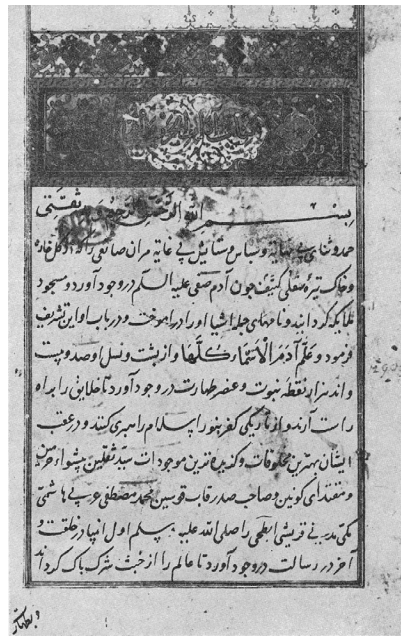 بسم الله الرحمن الرحيم
حمد و ثنای بی نهایة و سپاس و ستایش بی غایة مران صانعی را که از کل
و خاک تیرهٔ سفلی کثیف چون آدم صفی علیه السلم در وجود آورد و مسجود
ملایکه کردانید و نامهای جمله اشیا او را در اموخت و در باب او این تشریف
فرمود و علم آدم الاسماء کلها و از پشت و نسل او صد و بیست
و اند هزار نقطهٔ نبوت و عنصر طهارت در وجود آورد تا خلایق را براه
راست آرند و از تاریکی کفر بنور اسلام راهبری کنند و در عقب
ایشان بهترین مخلوقات و کزیده ترین موجودات سید ثقلین پیشوای حرمین
و مقتدای کونین و صاحب صدر قاب قوسین محمد مصطفی عربی هاشمی
مکی مدنی قریشی ابطحی را صلی الله علیه و سلم اول انبیا در خلقت و
آخر در رسالت در وجود آورد تا عالم را از خبث شرک پاک کرداند